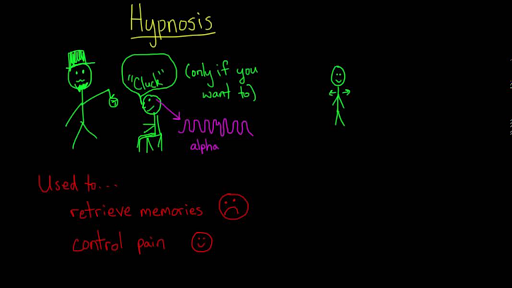 Hypnosis
"Cluck"
(only if you
want to)
alpha
Used to...
retrieve memories
control pain